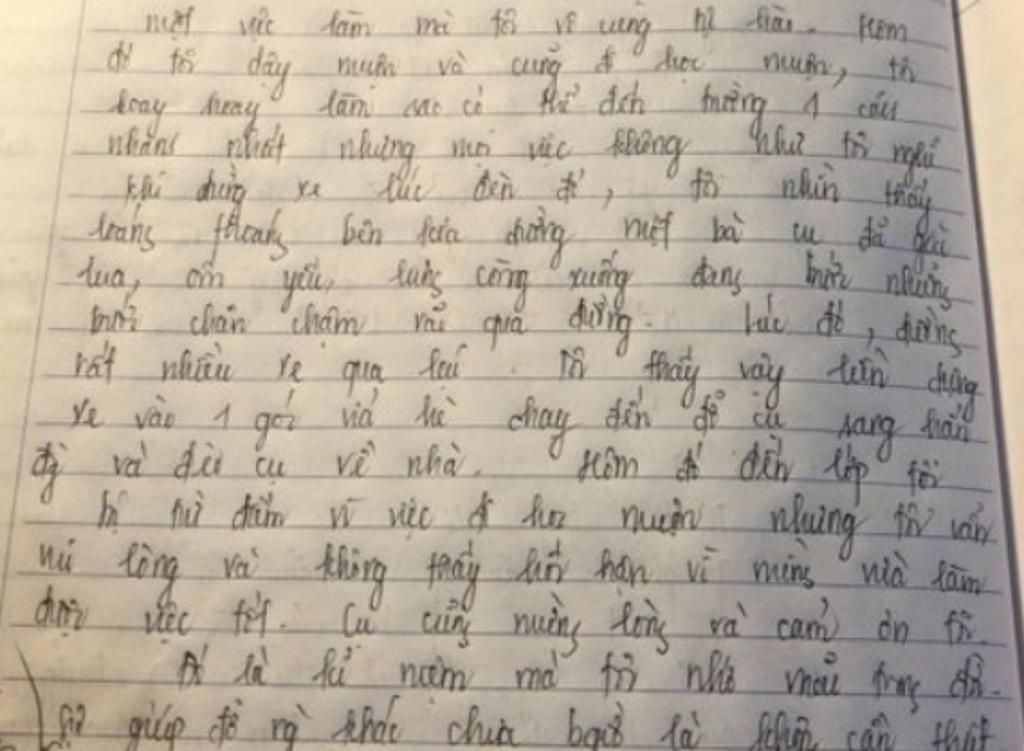 một việc làm mà tôi vô cùng tự hào. Hôm
đó tôi dậy muộn và cũng đi học muộn, tôi
loay hoay làm sao có thể đến trường 1 cách
nhanh nhất nhưng mọi việc không như tôi nghĩ
khi dừng xe lúc đèn đỏ, tôi nhìn thấy
loáng thoáng bên kia đường một bà cụ đã già
lua, ốm yếu, lưng còng xuống đang bước những
bước chân chậm rãi qua đường. Lúc đó, đường
rất nhiều xe qua lại. Tôi thấy vậy liền dừng
xe vào 1 góc vỉa hè chạy đến đỡ cụ sang
và đèo cụ về nhà. Hôm đó đến lớp tôi
bị trừ điểm vì việc đi học muộn nhưng tôi vẫn
vui lòng và không thấy hối hận vì mình vừa làm
được việc tốt. Cụ cũng mừng lòng và cảm ơn tôi.
Đó là kỉ niệm mà tôi nhớ mãi trong đời.
giúp đỡ ng khác chưa bao giờ là cần thiết